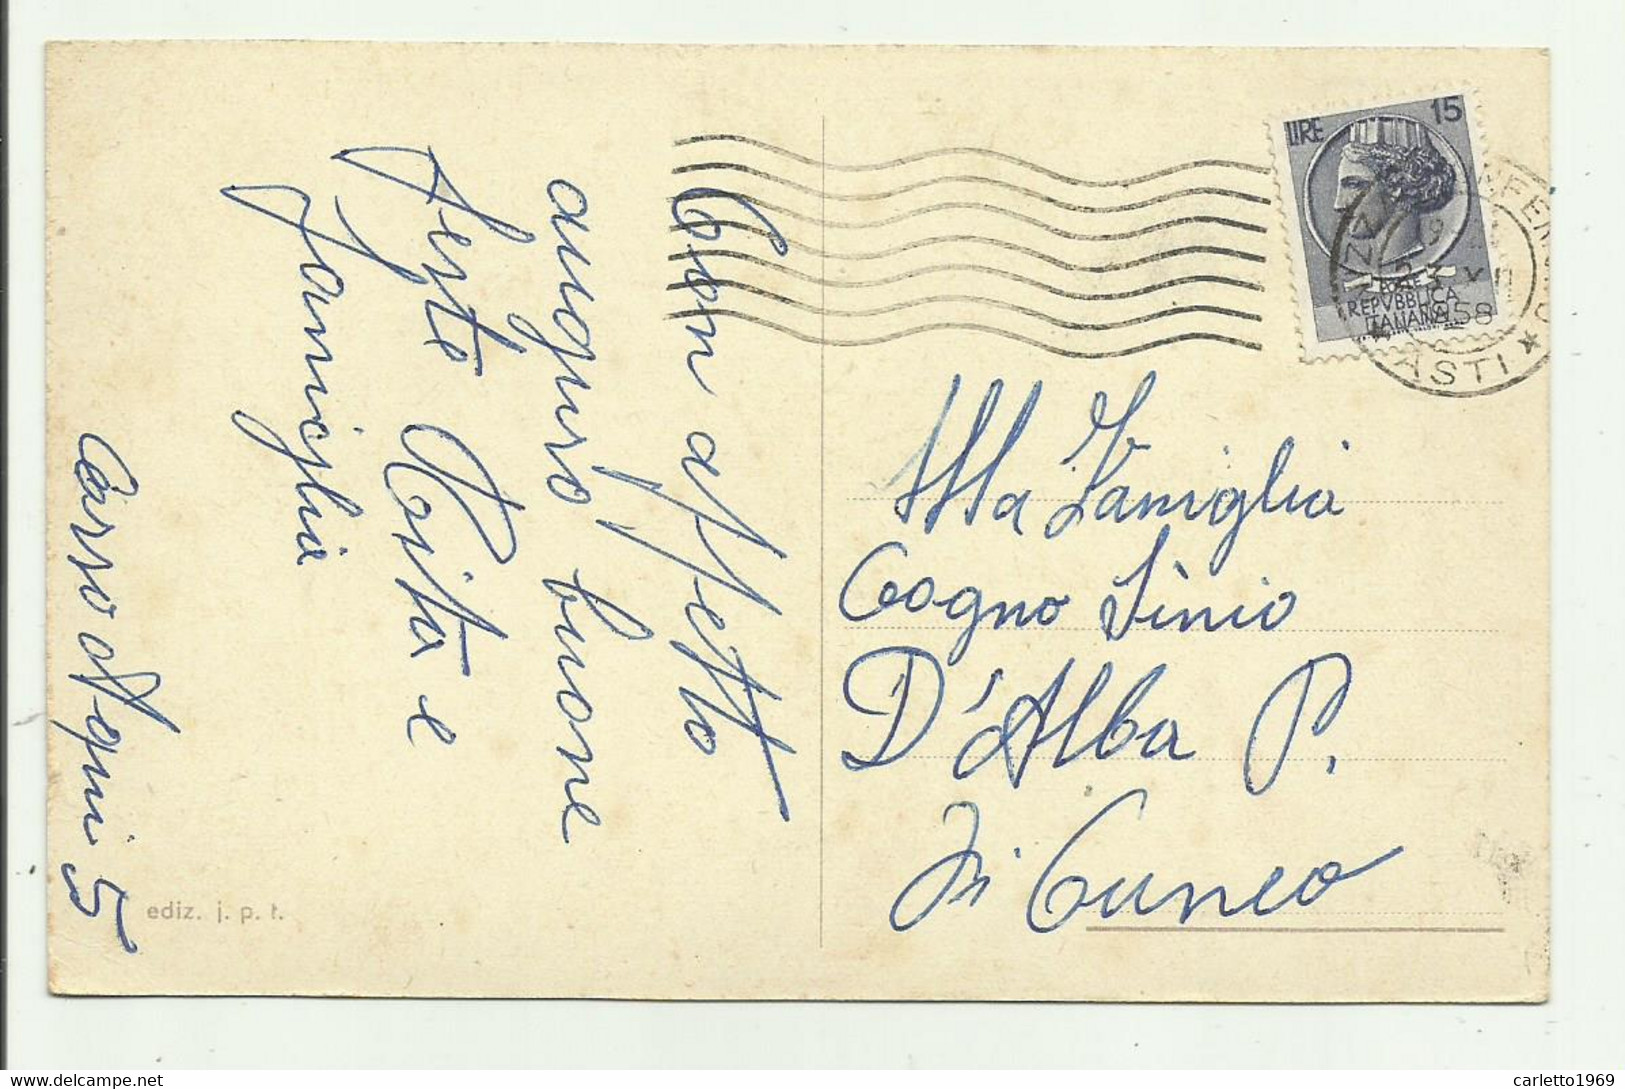 Con affetto
auguro buone
feste Rita e
famiglia
Corso Alfieri 5
ediz. j. p. t.
LIRE 15
REPVBBLICA
ITALIANA
1958
ASTI
Alla Famiglia
Cogno Sinio
D'Alba P.
Cuneo
carletto1969
delcampe.net